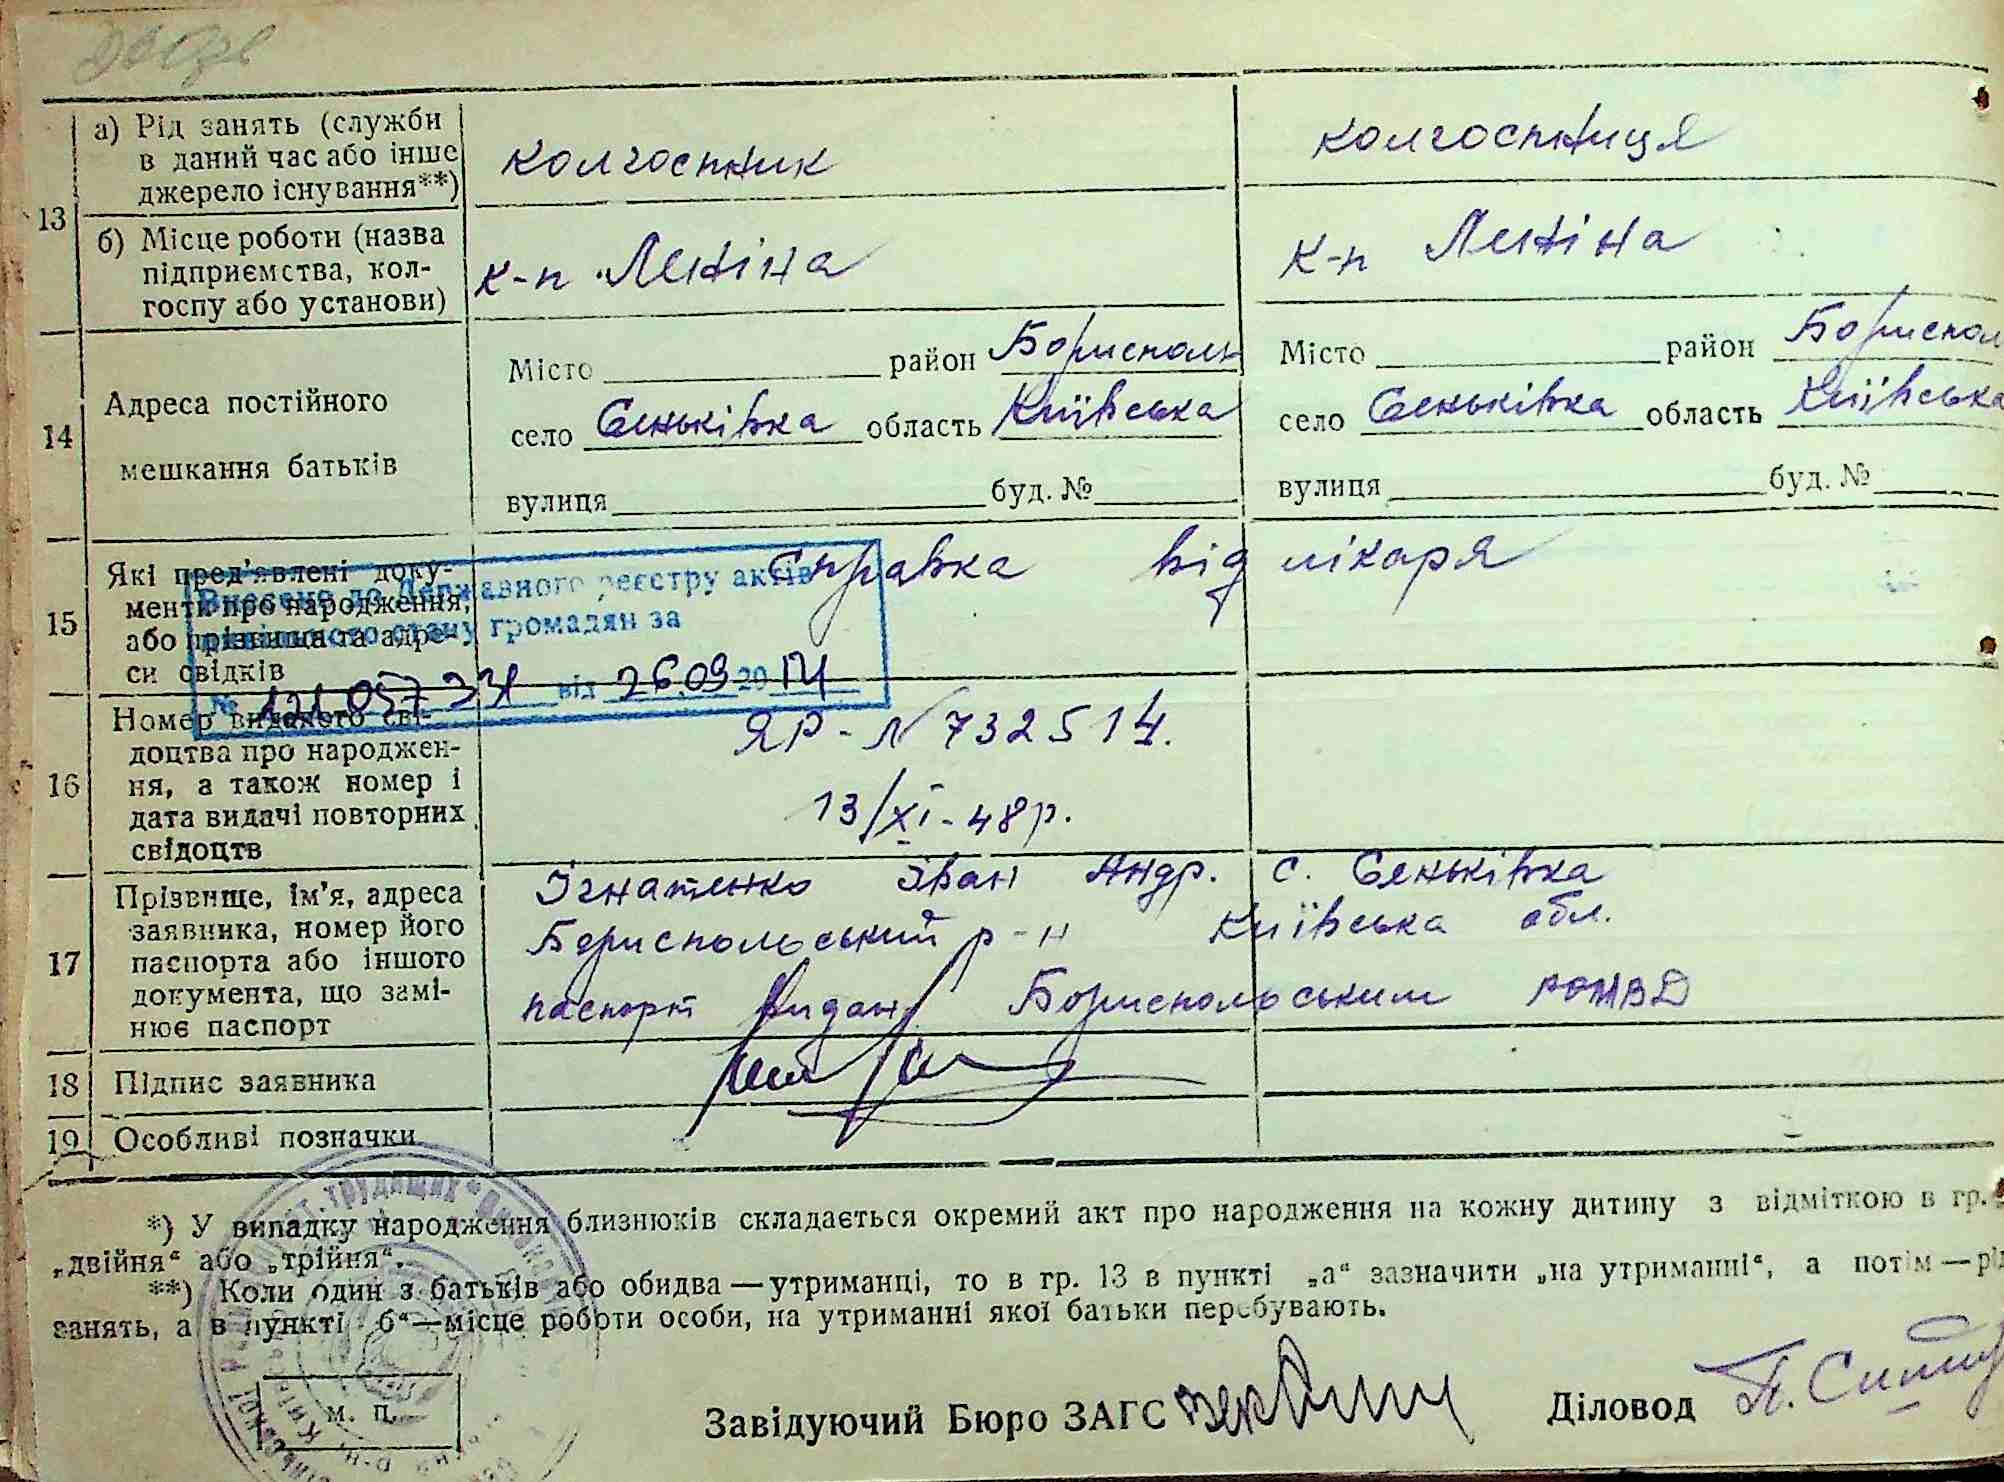 13
а) Рід занять (служби
в даний час або інше
джерело існування**)
колгоспник
колгоспниця
б) Місце роботи (назва
підприємства, кол-
госпу або установи)
к-п Леніна
к-п Леніна
14
Адреса постійного
мешкання батьків
Місто район Бориспольс
село Сеньківка область Київська
вулиця буд. №
Місто район Борисполь
село Сеньківка область Київська
вулиця буд. №
15
Які пред'явлені доку-
менти про народження,
або прізвища та адре-
си свідків
Справка від лікаря
Внесено до Державного реєстру актів
цивільного стану громадян за
№ від 26.09 2014
16
Номер виданого сві-
доцтва про народжен-
ня, а також номер і
дата видачі повторних
свідоцтв
ЯР-N 732514.
13/XI-48р.
17
Прізвище, ім'я, адреса
заявника, номер його
паспорта або іншого
документа, що замі-
нює паспорт
Ігнатенко Іван Андр. с. Сеньківка
Бориспольський р-н Київська обл.
паспорт видан Бориспольським РОМВД
18
Підпис заявника
19
Особливі позначки
*) У випадку народження близнюків складається окремий акт про народження на кожну дитину з відміткою в гр.
„двійня“ або „трійня“.
**) Коли один з батьків або обидва—утриманці, то в гр. 13 в пункті „а“ зазначити „на утриманні“, а потім—рід
занять, а в пункті „б“—місце роботи особи, на утриманні якої батьки перебувають.
м. п.
Завідуючий Бюро ЗАГС
Діловод